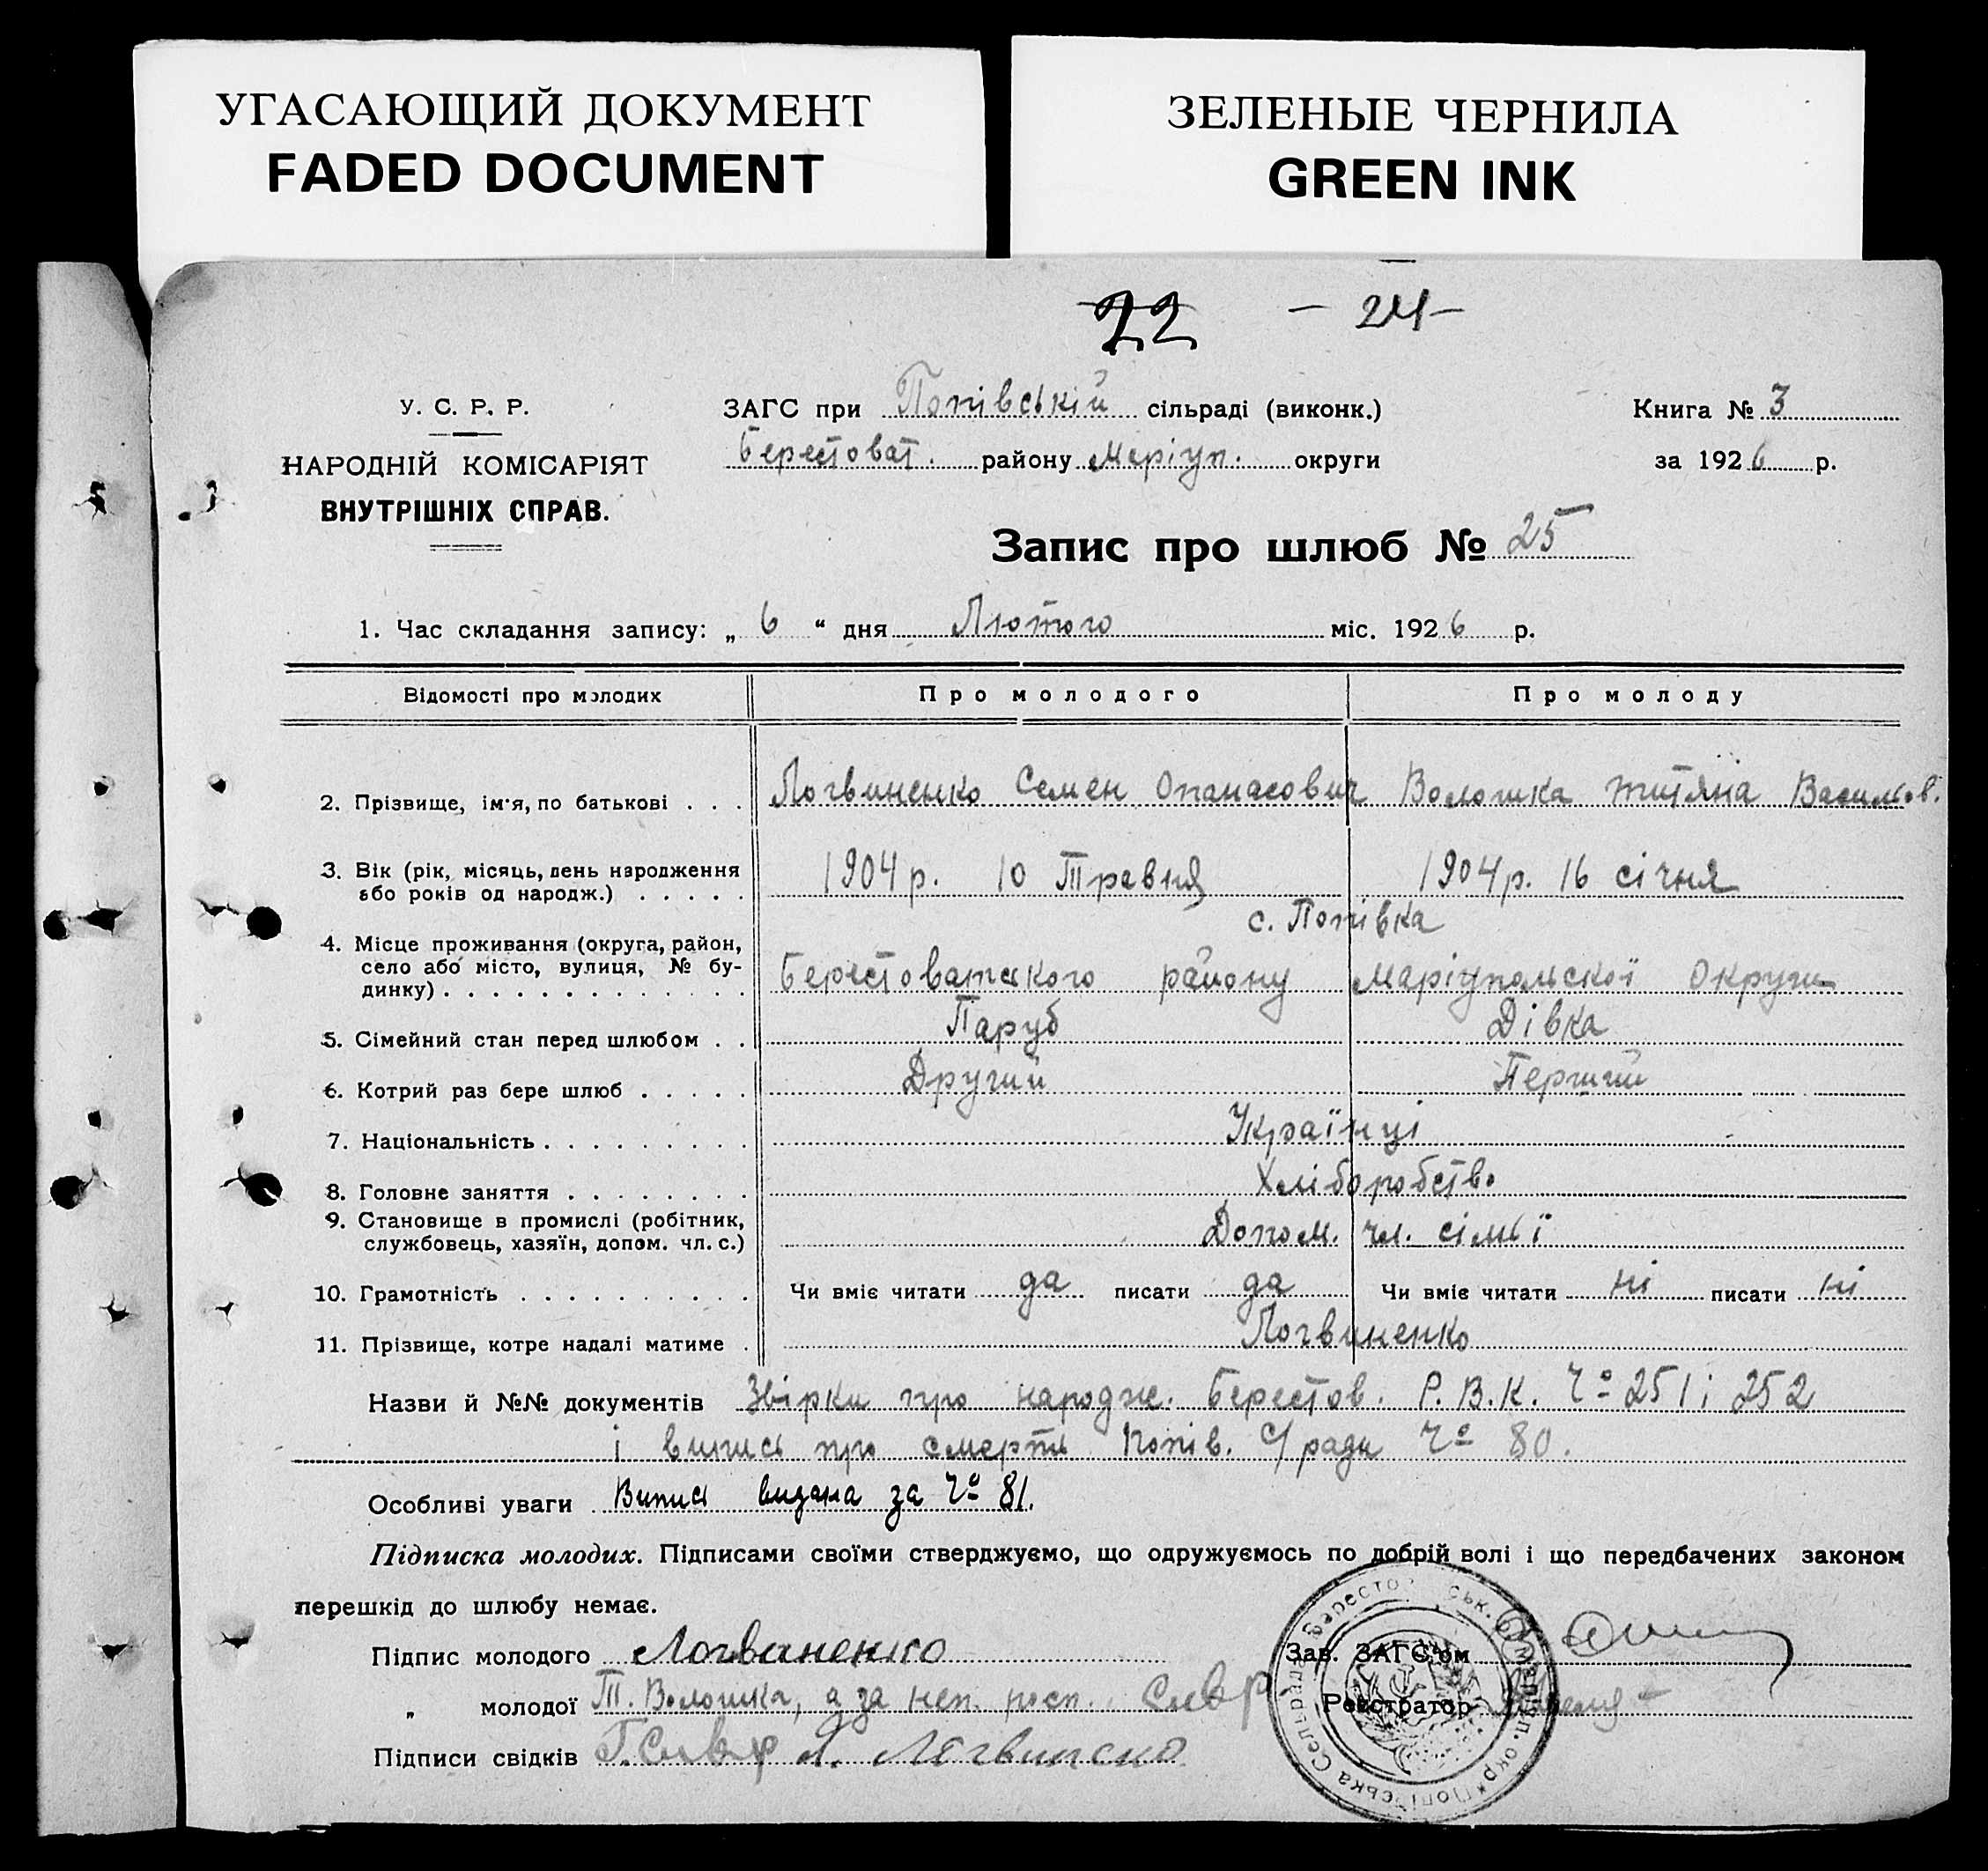 УГАСАЮЩИЙ ДОКУМЕНТ
FADED DOCUMENT
ЗЕЛЕНЫЕ ЧЕРНИЛА
GREEN INK
22 — 24 —
У. С. Р. Р.
НАРОДНІЙ КОМІСАРІЯТ
ВНУТРІШНІХ СПРАВ.
ЗАГС при Попівській сільраді (виконк.)
Берестоват. району Маріуп. округи
Книга № 3
за 1926 р.
Запис про шлюб № 25
1. Час складання запису: „ 6 “ дня Лютого міс. 1926 р.
Відомості про молодих Про молодого Про молоду
2. Прізвище, ім'я, по батькові . . . Логвиненко Семен Опанасович Волошка Титяна Васильов.
3. Вік (рік, місяць, день народження 1904 р. 10 Травня 1904 р. 16 січня
або років од народж.) . . . . .
с. Попівка
4. Місце проживання (округа, район,
село або місто, вулиця, № бу- Берестоватского району Маріупольскої Округи
динку) . . . . . . . . . . . . .
5. Сімейний стан перед шлюбом . . Паруб Дівка
6. Котрий раз бере шлюб . . . . . Другий Перший
7. Національність . . . . . . . . . Українці
8. Головне заняття . . . . . . . . Хліборобство
9. Становище в промислі (робітник,
службовець, хазяїн, допом. чл. с.) Допом. чл. сімьї
10. Грамотність . . . . . . . . . . Чи вміє читати да писати да Чи вміє читати ні писати ні
11. Прізвище, котре надалі матиме . Логвиненко
Назви й №№ документів Звірки про народж. Берестов. Р. В. К. Ч° 251 і 252
і випись про смерть Попів. С/ради Ч° 80.
Особливі уваги Випись видана за Ч° 81.
Підписка молодих. Підписами своїми стверджуємо, що одружуємось по добрій волі і що передбачених законом
перешкід до шлюбу немає.
Підпис молодого Логвиненко Зав. ЗАГС'ом
„ молодої Т. Волошка, а за неп. росп. Реєстратор
Підписи свідків Логвиненко